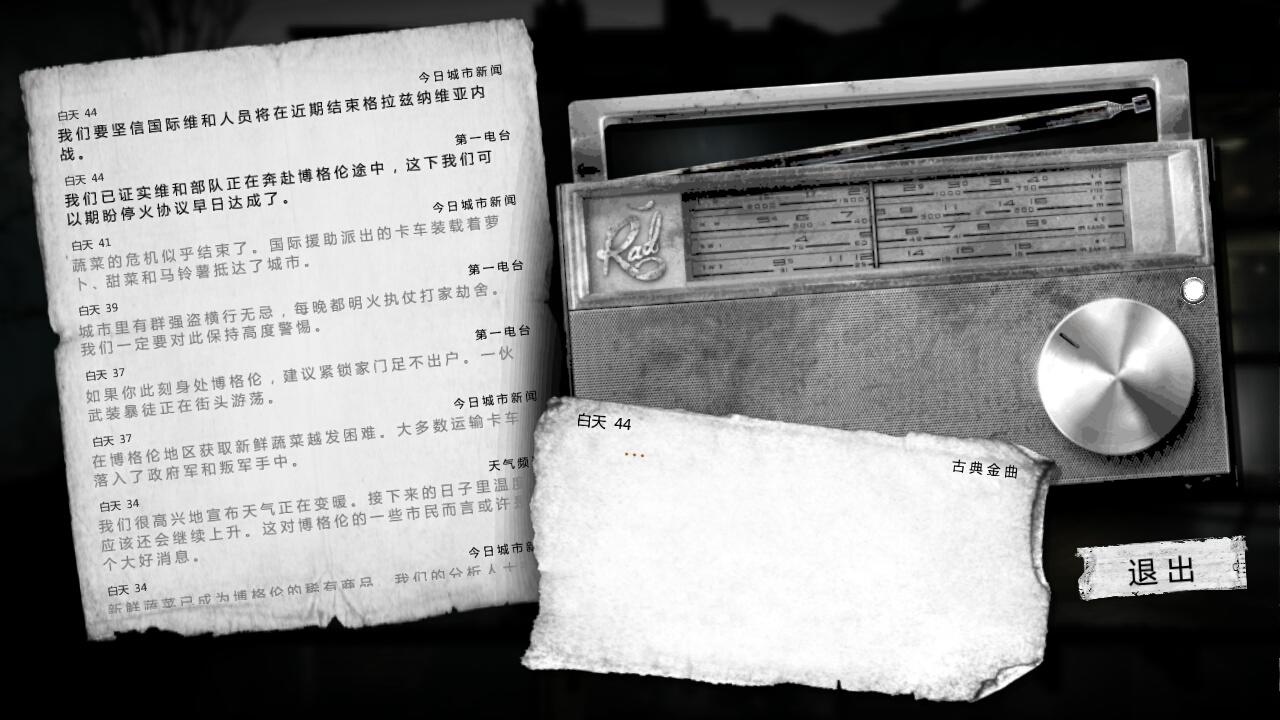 今日城市新闻
白天 44
我们要坚信国际维和人员将在近期结束格拉兹纳维亚内
战。
第一电台
白天 44
我们已证实维和部队正在奔赴博格伦途中，这下我们可
以期盼停火协议早日达成了。
今日城市新闻
白天 41
蔬菜的危机似乎结束了。国际援助派出的卡车装载着萝
卜、甜菜和马铃薯抵达了城市。
第一电台
白天 39
城市里有群强盗横行无忌，每晚都明火执仗打家劫舍。
我们一定要对此保持高度警惕。
第一电台
白天 37
如果你此刻身处博格伦，建议紧锁家门足不出户。一伙
武装暴徒正在街头游荡。
今日城市新闻
白天 37
在博格伦地区获取新鲜蔬菜越发困难。大多数运输卡车
落入了政府军和叛军手中。
天气频
白天 34
我们很高兴地宣布天气正在变暖。接下来的日子里温度
应该还会继续上升。这对博格伦的一些市民而言或许是
个大好消息。
今日城市新
白天 34
新鲜蔬菜已成为博格伦的稀有商品。我们的分析人士
Rad
白天 44
...
古典金曲
退出